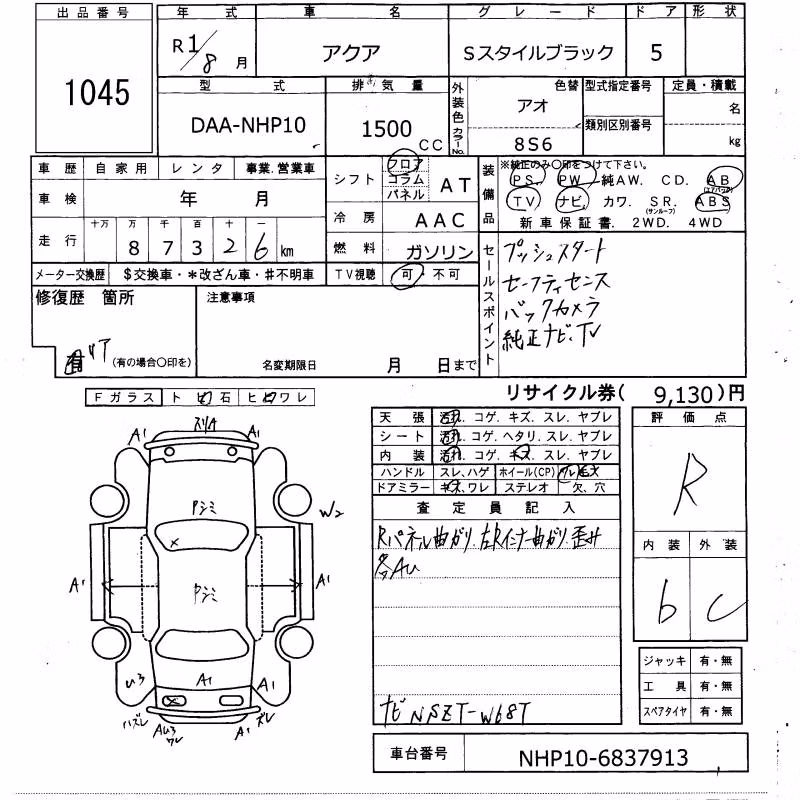 出品番号 年式 車名 グレード ドア 形状
1045 R1/8月 アクア Sスタイルブラック 5
型式 排気量 外装色 カラーNo. 色替 型式指定番号 定員・積載
DAA-NHP10 1500CC アオ 8S6 類別区別番号 名 kg
車歴 自家用 レンタ 事業.営業車
車検 年 月
走行 十万 万 千 百 十 一
87326km
メーター交換歴 $交換車・*改ざん車・#不明車
シフト フロア コラム パネル AT
冷房 AAC
燃料 ガソリン
TV視聴 可・不可
装備品 ※純正のみ○印をつけて下さい。
PS. PW. 純AW. CD. AB(エアバッグ)
TV ナビ. カワ. SR.(サンルーフ) ABS
新車保証書. 2WD. 4WD
修復歴 箇所
リア
(有の場合○印を)
注意事項
名変期限日 月 日まで
セールスポイント
プッシュスタート
セーフティセンス
バックカメラ
純正ナビ.TV
リサイクル券( 9,130)円
Fガラス トビ石 ヒビワレ
スリキ
A1 A1
Pシミ
W2
A1 A1
Pシミ
A1 A1
ハズレ ズレ
ワレ
A1
天張 汚れ. コゲ. キズ. スレ. ヤブレ
シート 汚れ. コゲ. ヘタリ. スレ. ヤブレ
内装 汚れ. コゲ. キズ. スレ. ヤブレ
ハンドル スレ,ハゲ ホイール(CP)
ドアミラー キズ,ワレ ステレオ 欠、穴
査定員記入
Rパネル曲がり.左Rインナー曲がり.歪み
各AU
ナビNSZT-W68T
評価点
R
内装 外装
b C
ジャッキ 有・無
工具 有・無
スペアタイヤ 有・無
車台番号 NHP10-6837913